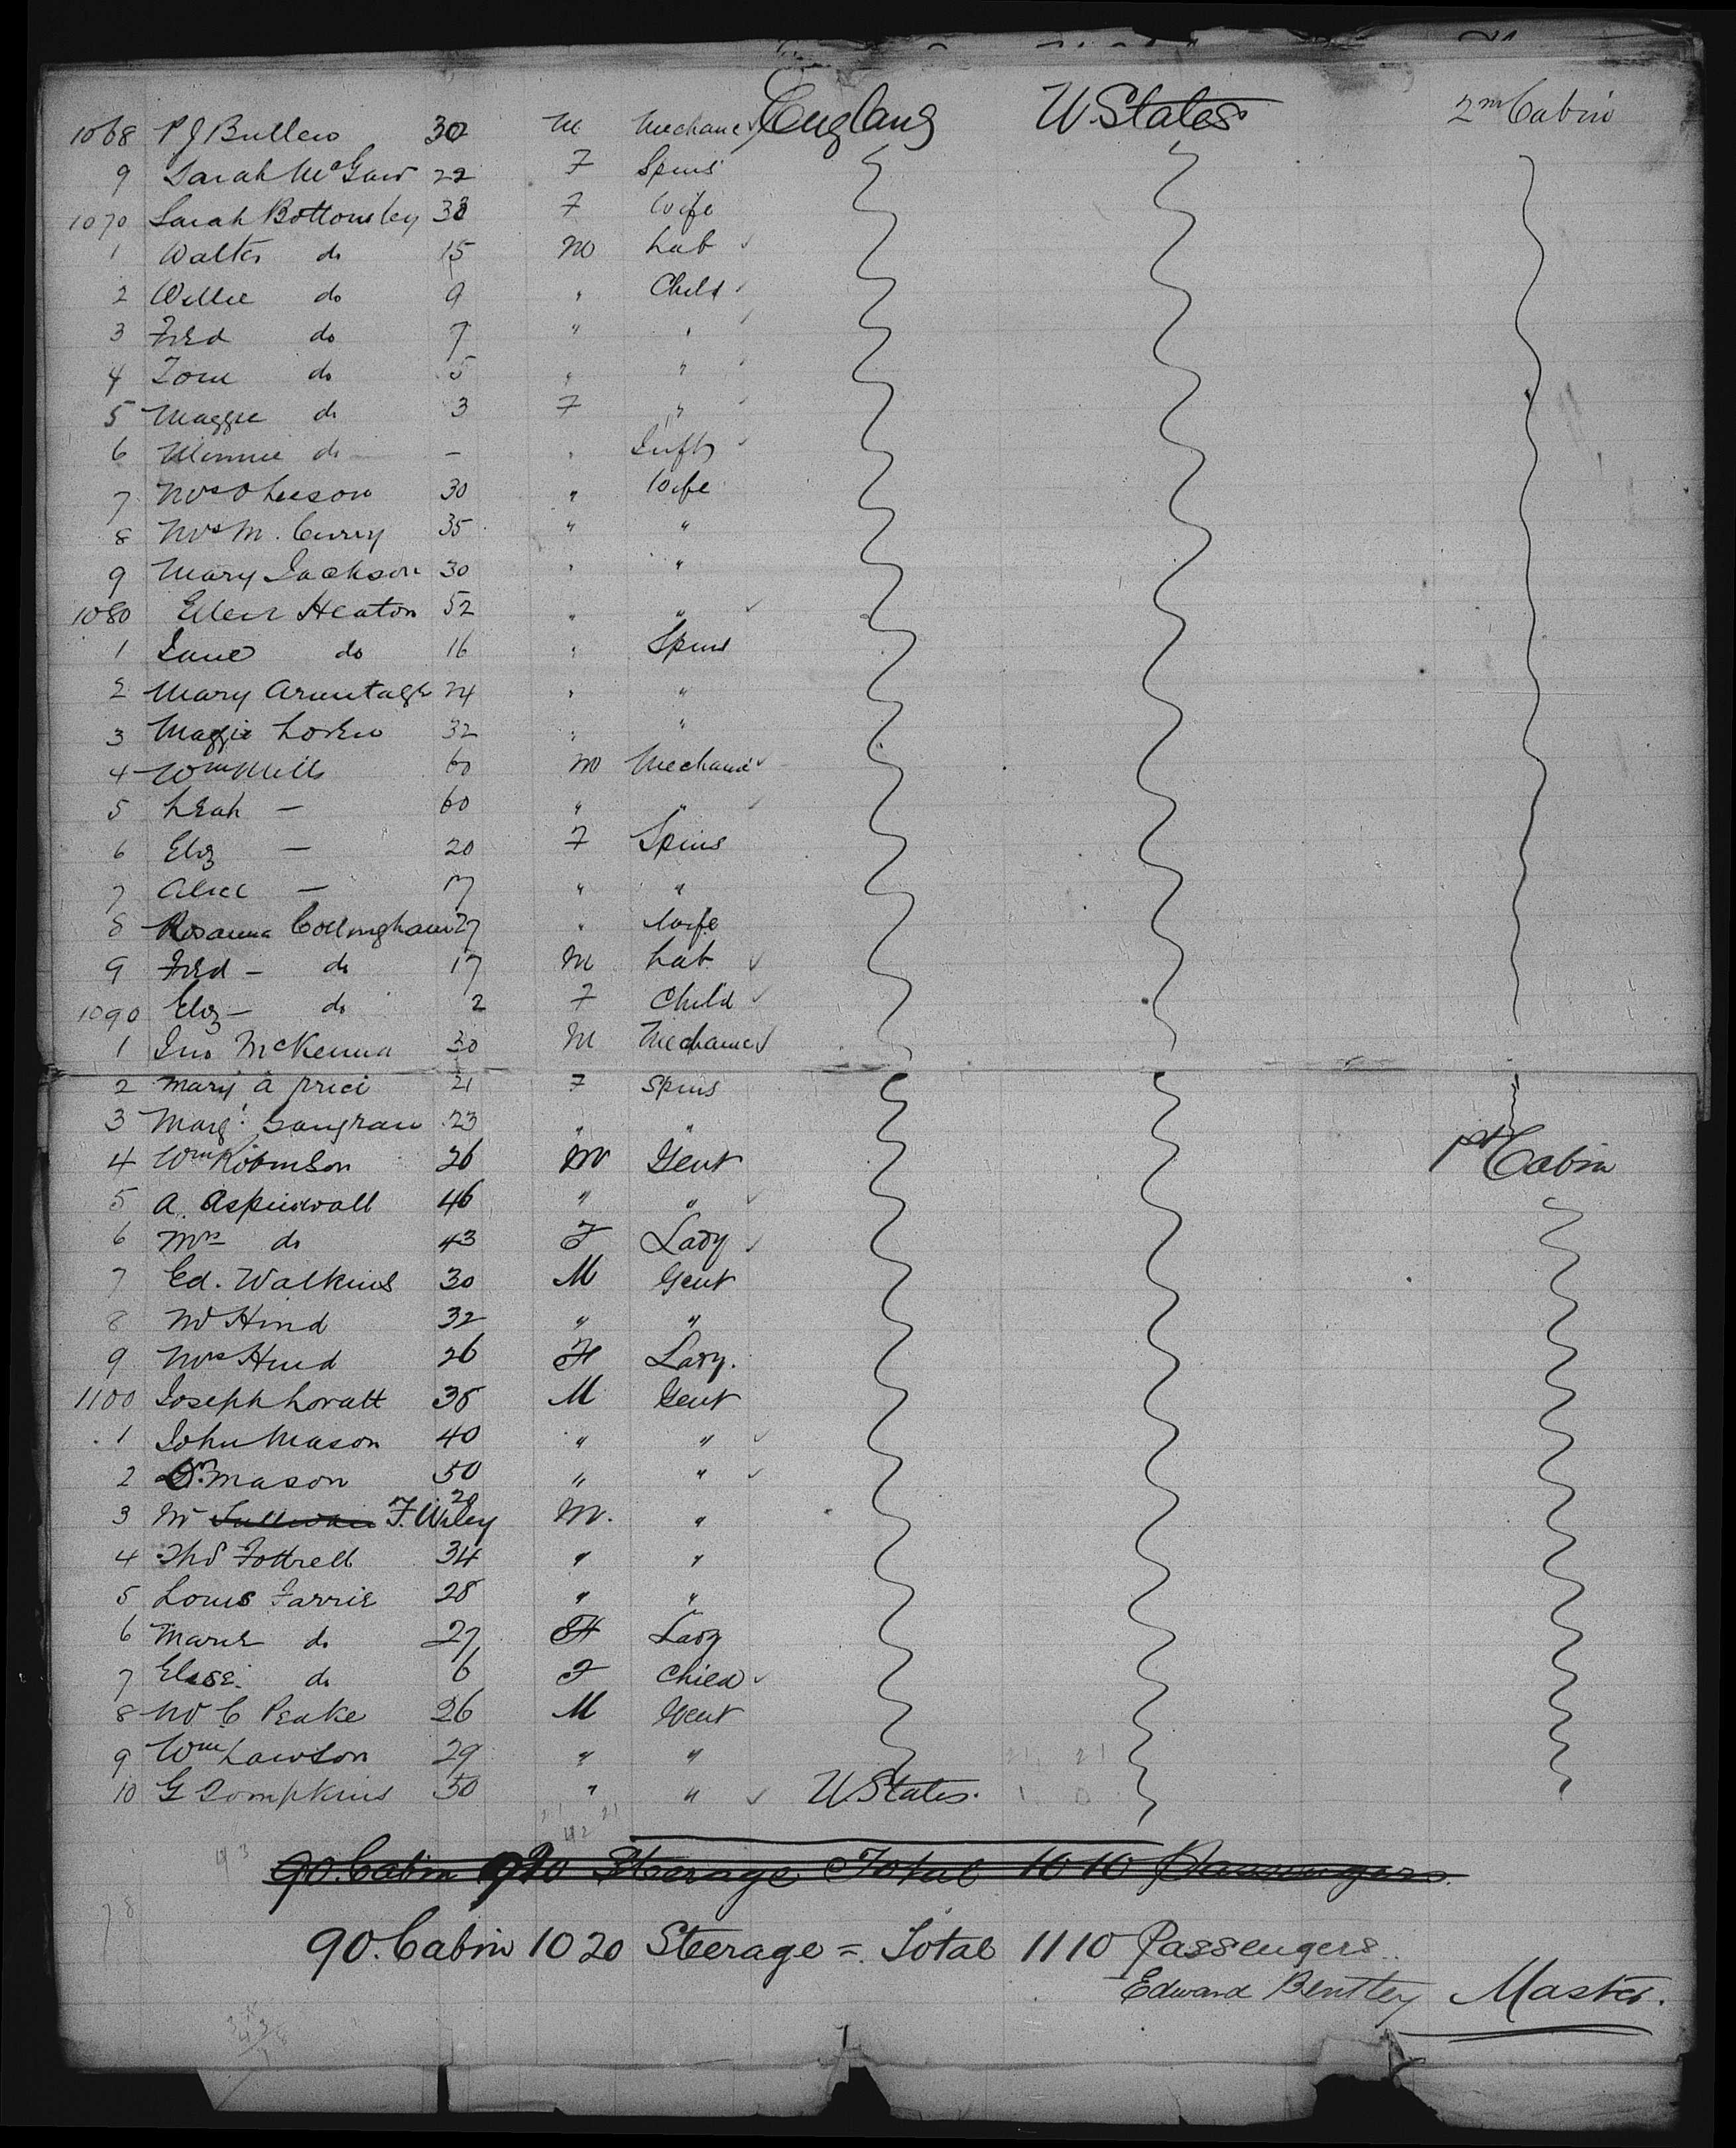 1068 P J Bullen 30 M Mechanic England U. States 2nd Cabin
9 Sarah McGaw 22 F Spins
1070 Sarah Bottomley 38 F Wife
1 Walter do 15 M Lab
2 Willie do 9 " Child
3 Fred do 7 " "
4 Tom do 5 " "
5 Maggie do 3 F "
6 Minnie do — " Inft
7 Mrs 30 " Wife
8 Mrs M. Curry 35 " "
9 Mary Jackson 30 " "
1080 Ellen Heaton 52 " "
1 Jane do 16 " Spins
2 Mary Armitage 24 " "
3 Maggie 32 " "
4 Wm Mills 60 M Mechanic
5 Leah — 60 " "
6 Eliz — 20 F Spins
7 Alice — 17 " "
8 Rosanna Collingham 27 " Wife
9 Fred — do 17 M Lab
1090 Eliz — do 2 F Child
1 Jno McKenna 30 M Mechanic
2 Mary A Price 21 F Spins
3 Margt 23 " "
4 Wm Robinson 26 M Gent 1st Cabin
5 A. Aspinwall 46 " "
6 Mrs do 43 F Lady
7 Ed. Watkins 30 M Gent
8 Mr Hind 32 " "
9 Mrs Hind 26 F Lady.
1100 Joseph Lovatt 38 M Gent
1 John Mason 40 " "
2 Dr. Mason 50 " "
3 Mr Sullivan F. Wiley 28 M. "
4 Thos Fottrell 34 " "
5 Louis Farrie 28 " "
6 Marie do 27 F Lady
7 Elsie. do 6 F Child
8 Mr C Peake 26 M Gent
9 Wm Lawson 29 " "
10 G Tompkins 50 " " U States.
90. Cabin 920 Steerage Total 1010 Passengers.
90. Cabin 1020 Steerage = Total 1110 Passengers.
Edward Bentley Master.